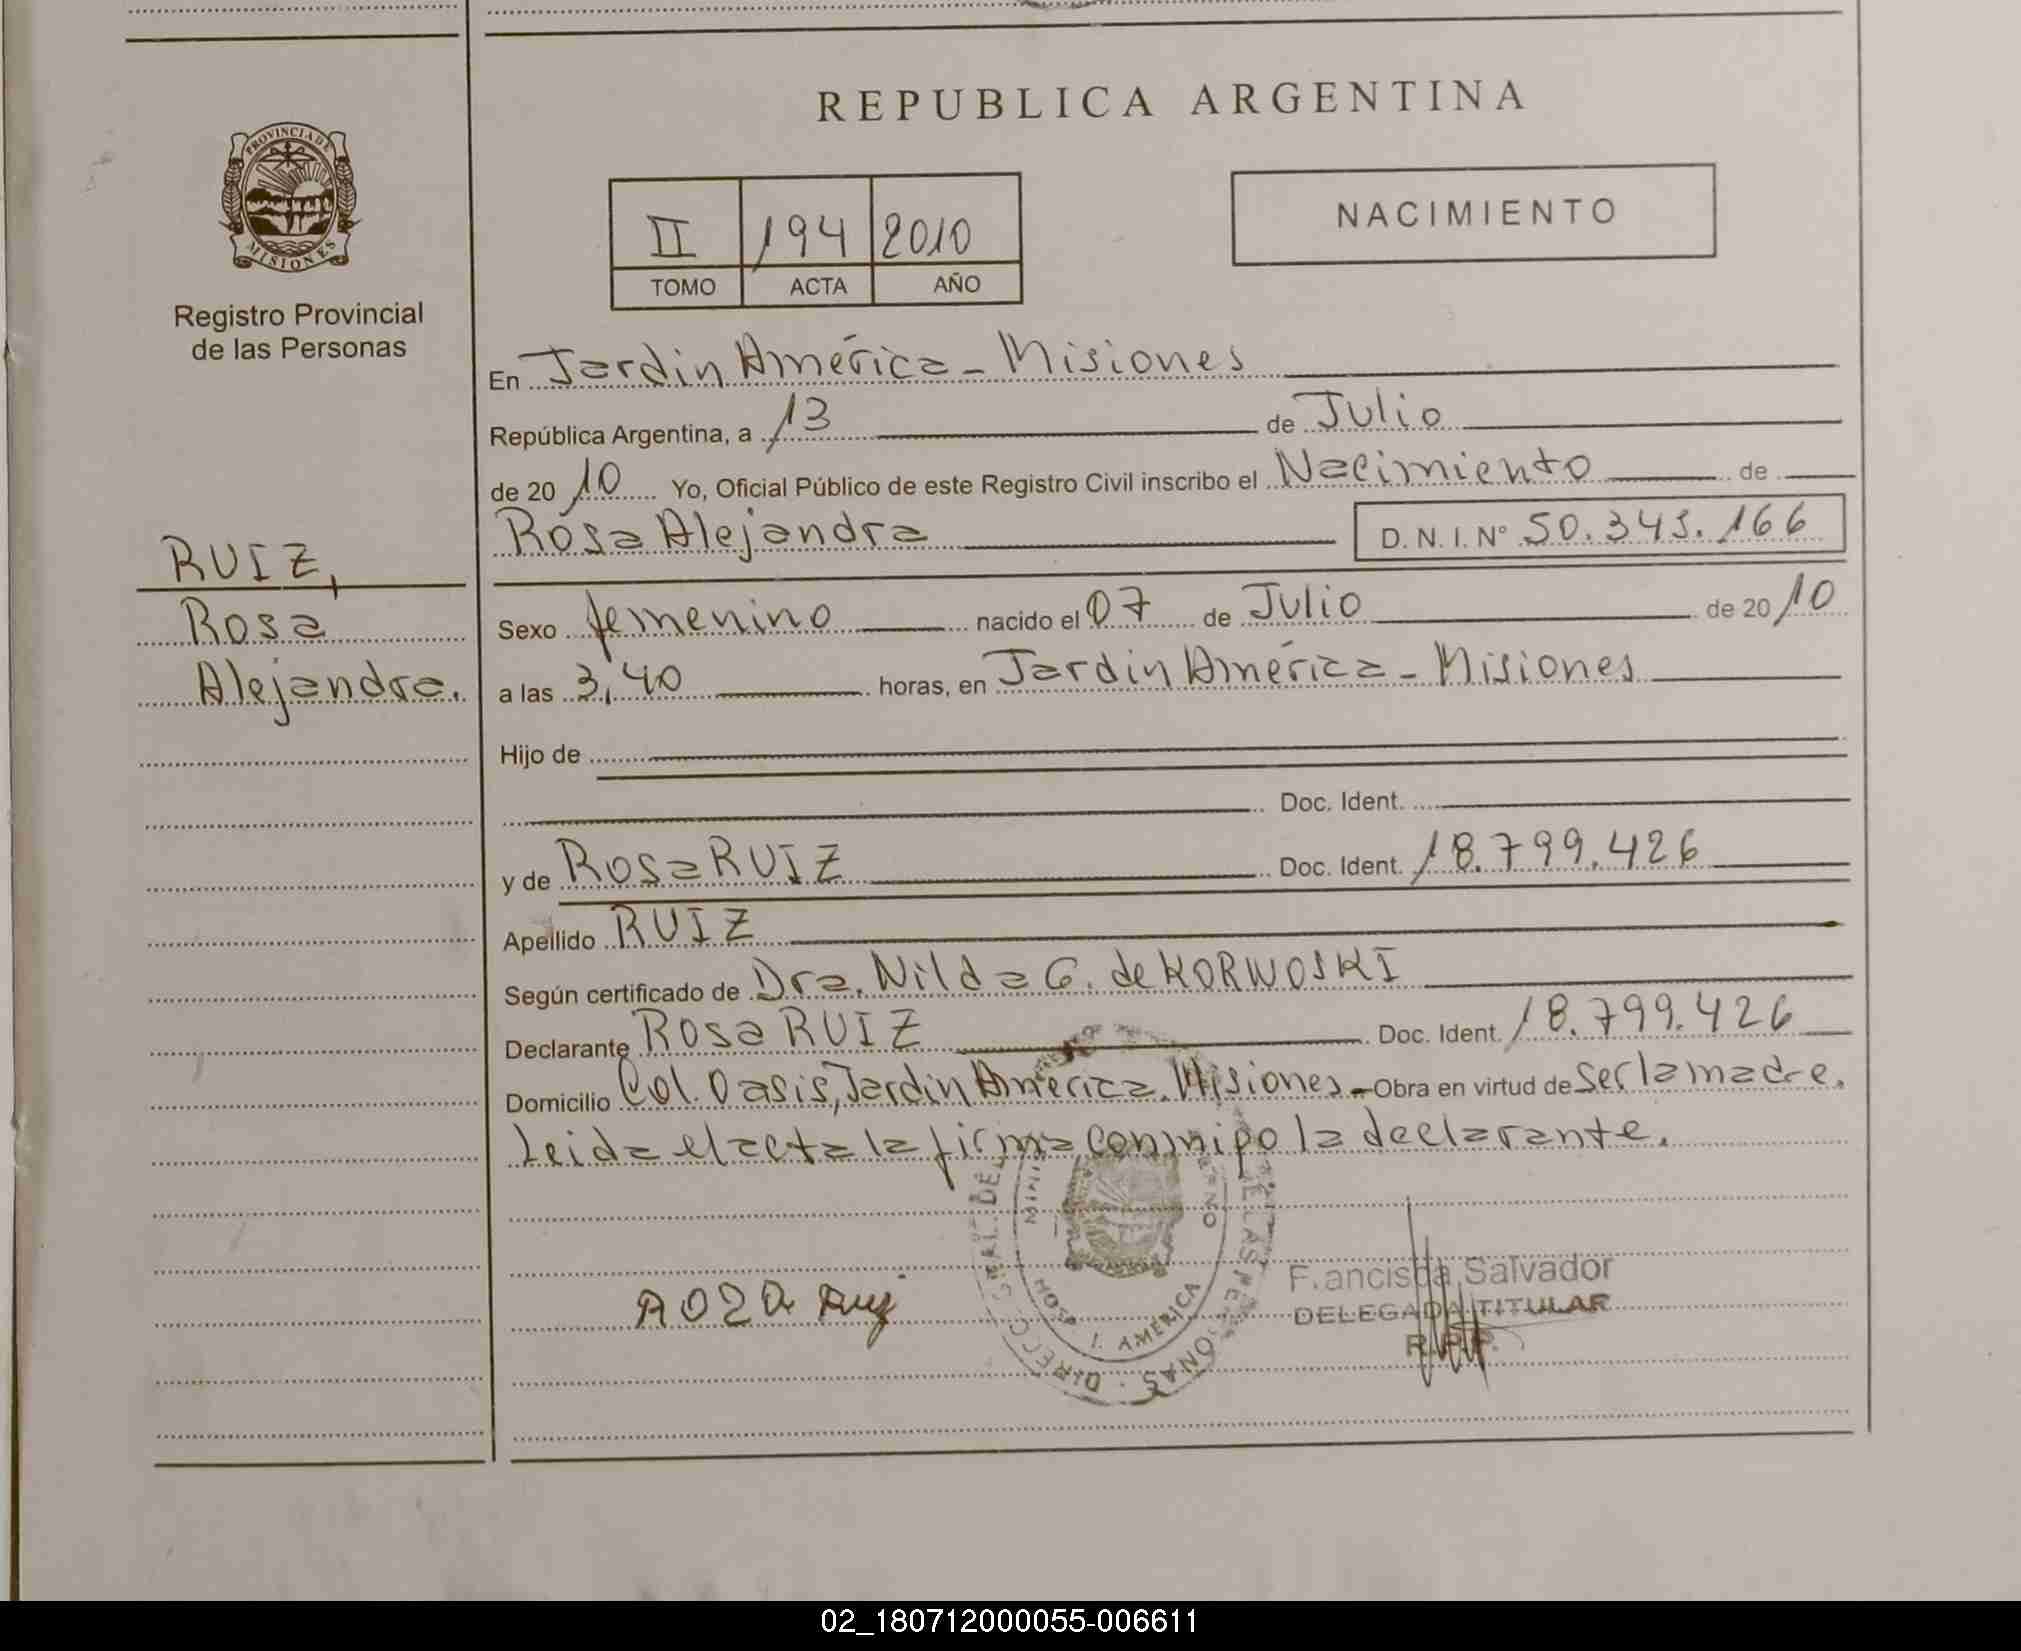 REPUBLICA ARGENTINA
PROVINCIA DE
MISIONES
Registro Provincial
de las Personas
II 194 2010
TOMO ACTA AÑO
NACIMIENTO
En Jardin América - Misiones
República Argentina, a 13 de Julio
de 2010 Yo, Oficial Público de este Registro Civil inscribo el Nacimiento de
Rosa Alejandra D.N.I. Nº 50.343.166
RUIZ,
Rosa
Alejandra.
Sexo femenino nacido el 07 de Julio de 2010
a las 3,40 horas, en Jardin América - Misiones
Hijo de
Doc. Ident.
y de Rosa RUIZ Doc. Ident. 18.799.426
Apellido RUIZ
Según certificado de Dra. Nilda G. de KORWOSKI
Declarante Rosa RUIZ Doc. Ident. 18.799.426
Domicilio Col. Oasis, Jardin América. Misiones - Obra en virtud de ser la madre.
Leida el acta la firma conmigo la declarante.
Francisca Salvador
DELEGADA TITULAR
R.P.P.
02_180712000055-006611